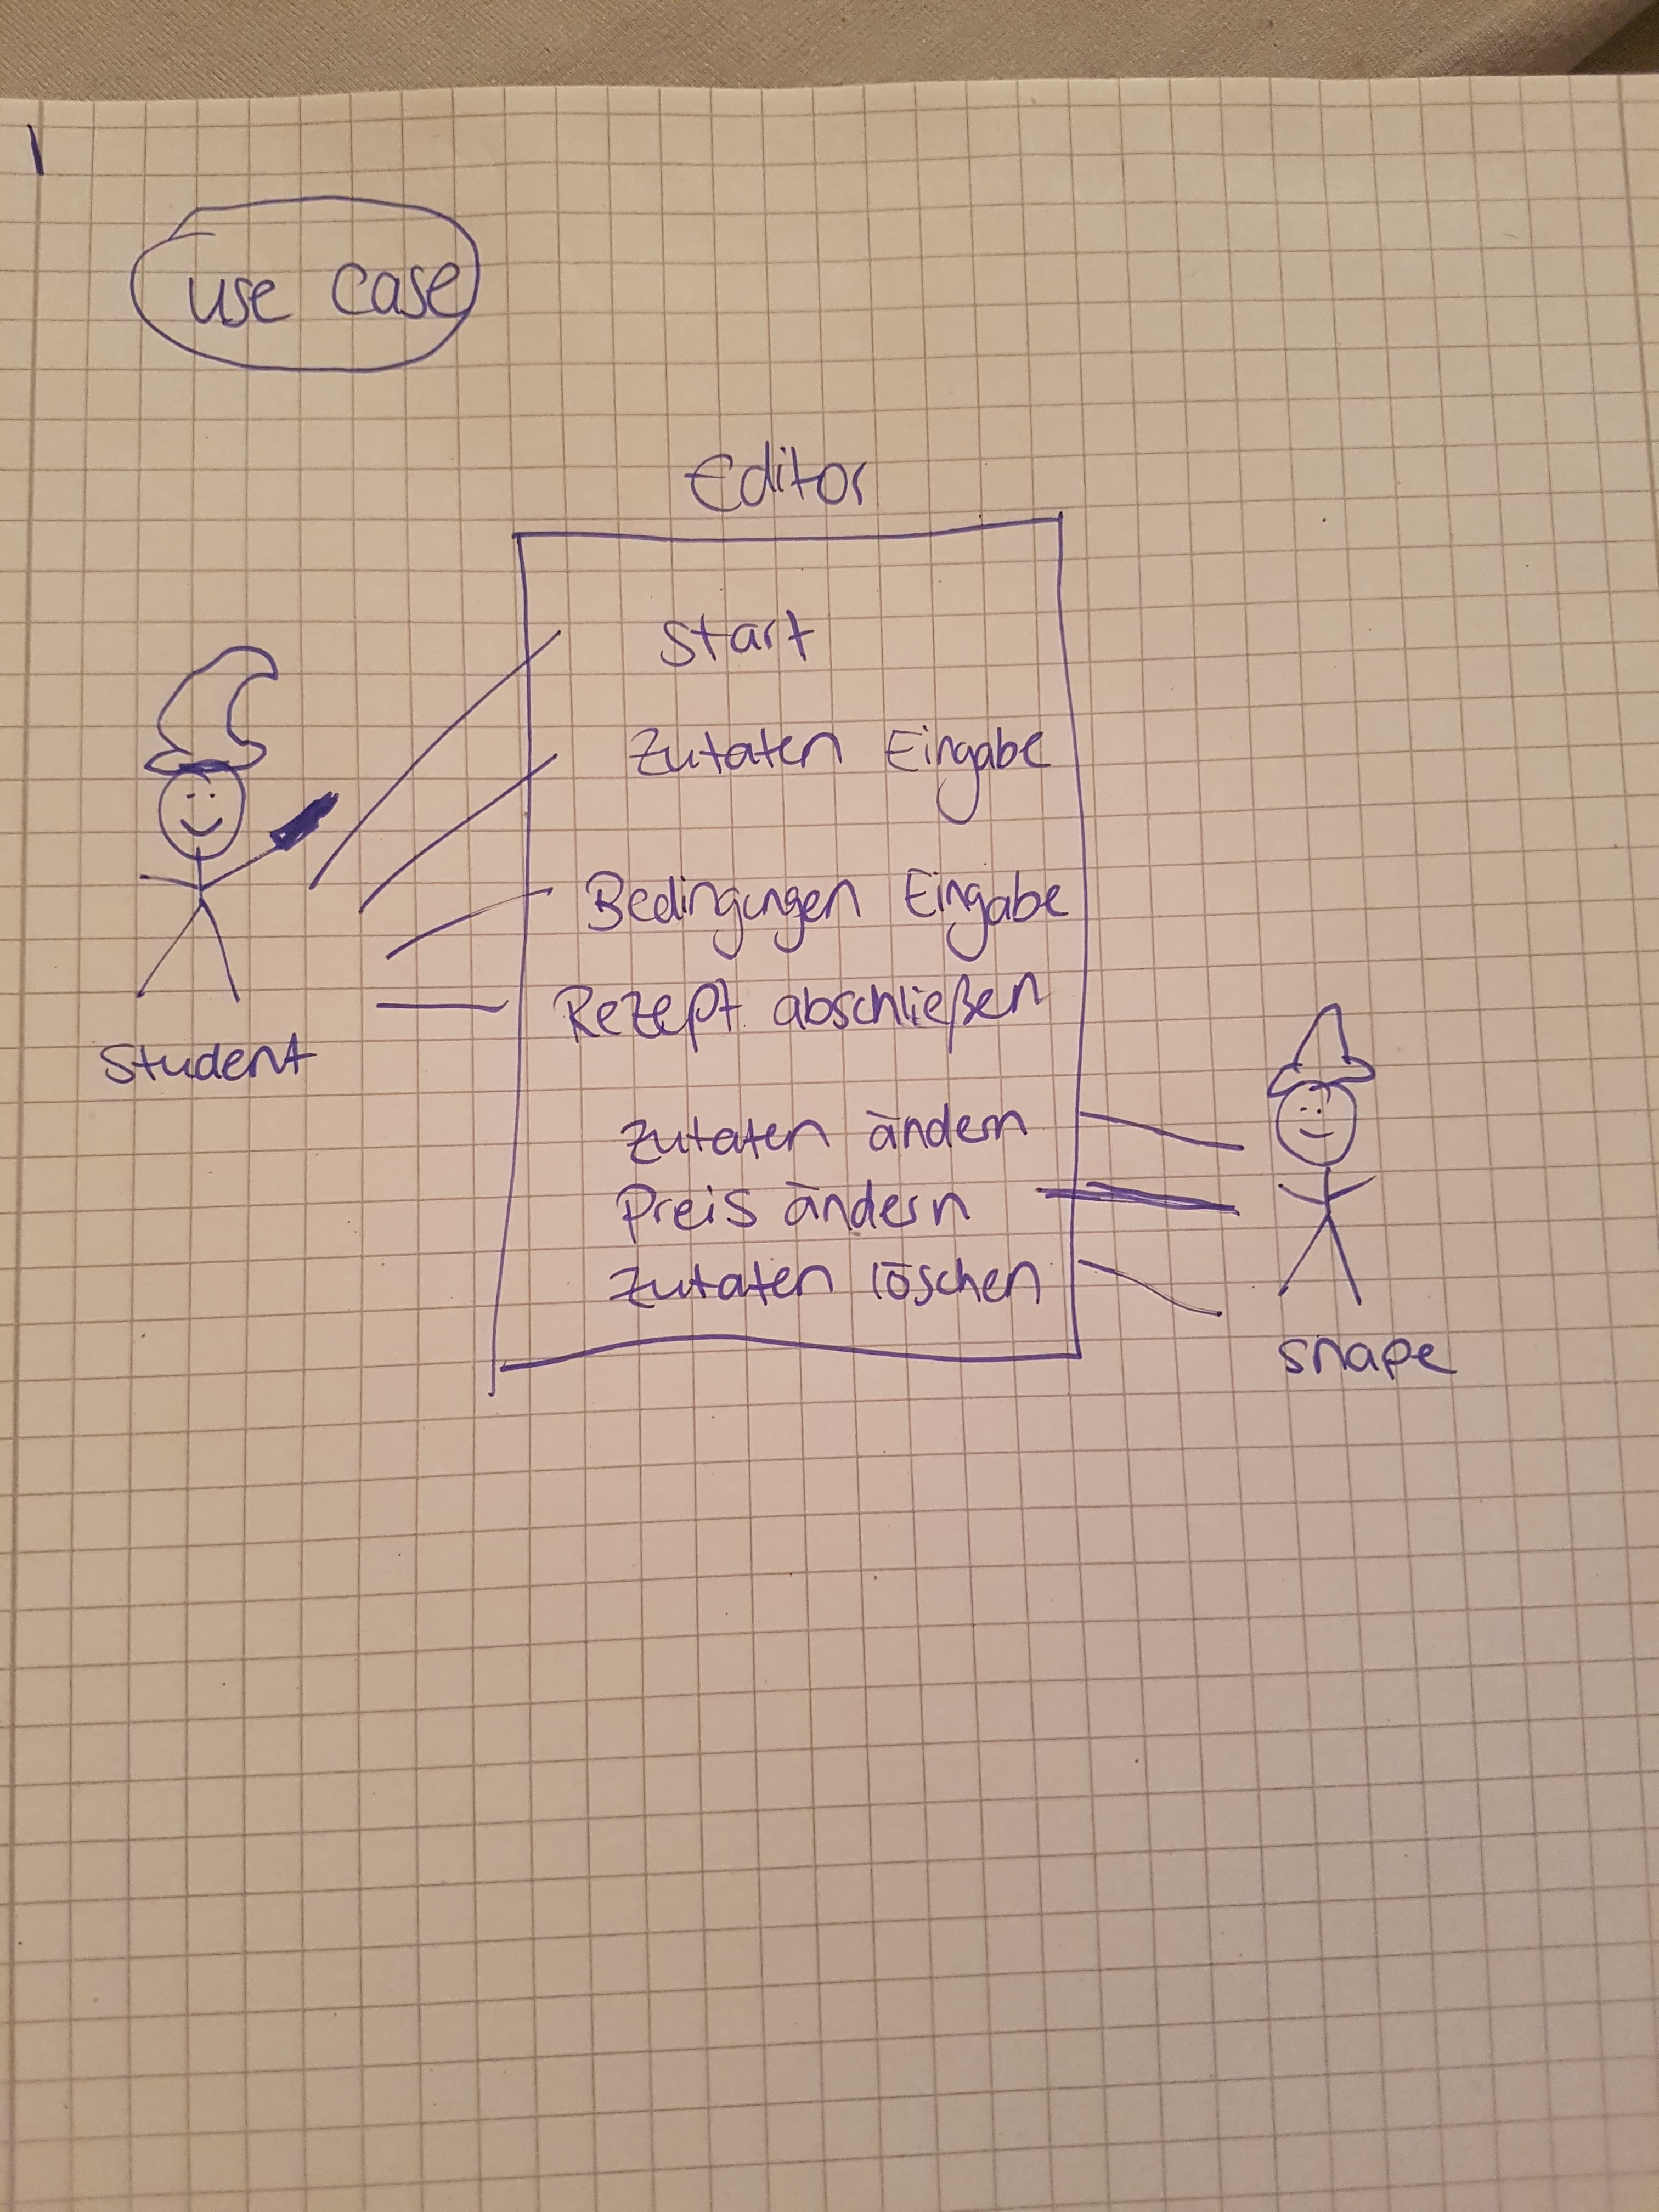 use case
Editor
Start
Zutaten Eingabe
Bedingungen Eingabe
Rezept abschließen
Student
Zutaten ändern
Preis ändern
Zutaten löschen
snape